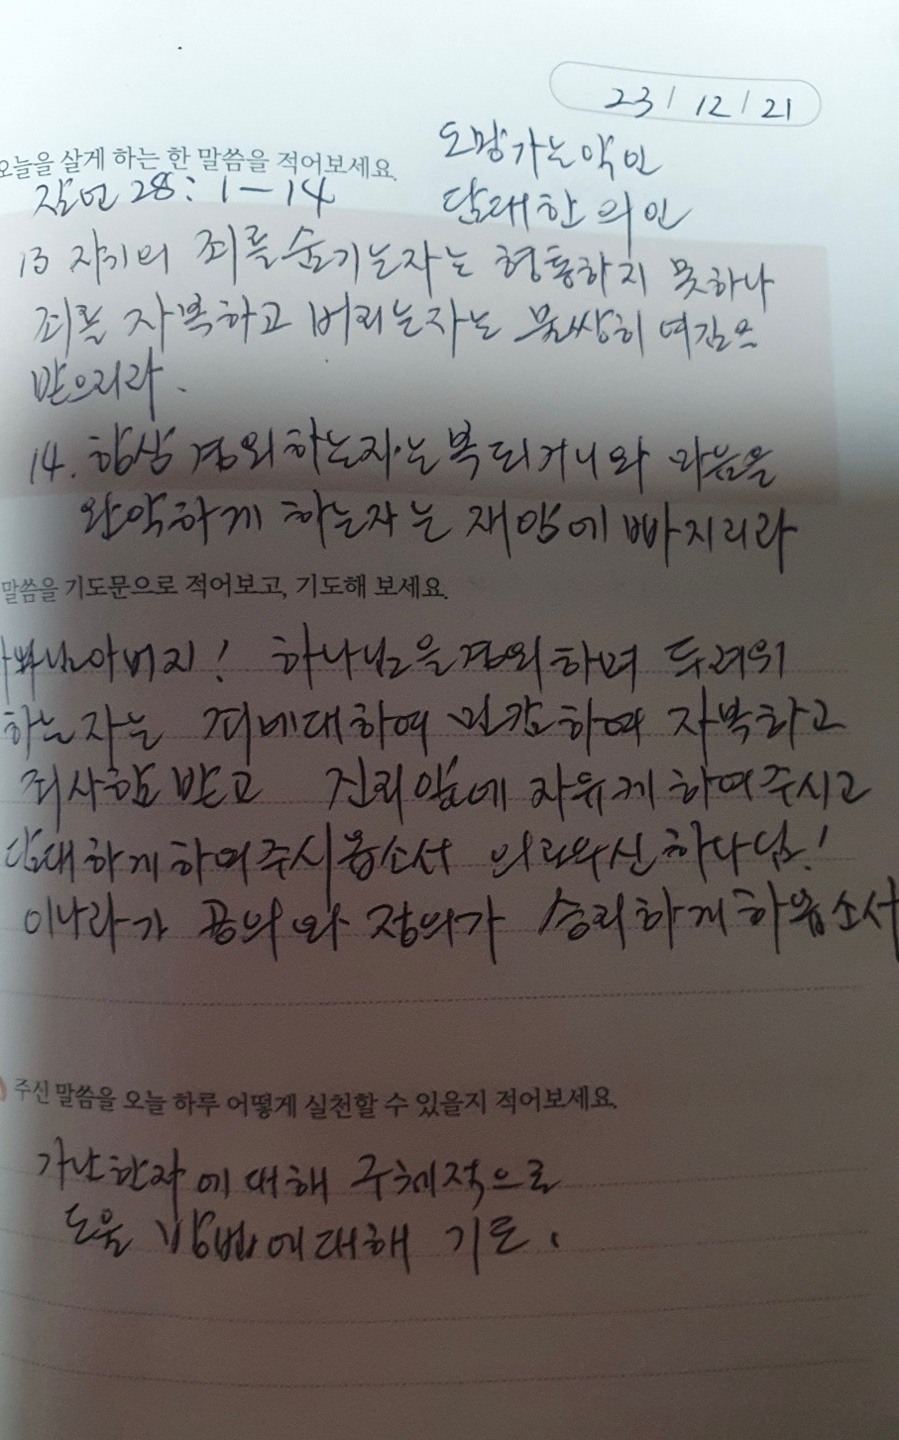 23 / 12 / 21
오늘을 살게 하는 한 말씀을 적어보세요.
도망가는 악인
잠언 28 : 1 - 14
담대한 의인
13 자기의 죄를 숨기는자는 형통하지 못하나
죄를 자복하고 버리는자는 불쌍히 여김을
받으리라.
14. 항상 경외하는자는 복되거니와 마음을
완악하게 하는자는 재앙에 빠지리라
말씀을 기도문으로 적어보고, 기도해 보세요.
아버지! 하나님을 경외하며 두려워
하는자는 죄에대하여 민감하여 자복하고
죄사함 받고 진리앞에 자유케 하여주시고
담대하게하여주시옵소서 의로우신 하나님!
이나라가 공의와 정의가 승리하게하옵소서
주신 말씀을 오늘 하루 어떻게 실천할 수 있을지 적어보세요.
가난한자에대해 구체적으로
도울 방법에대해 기도.